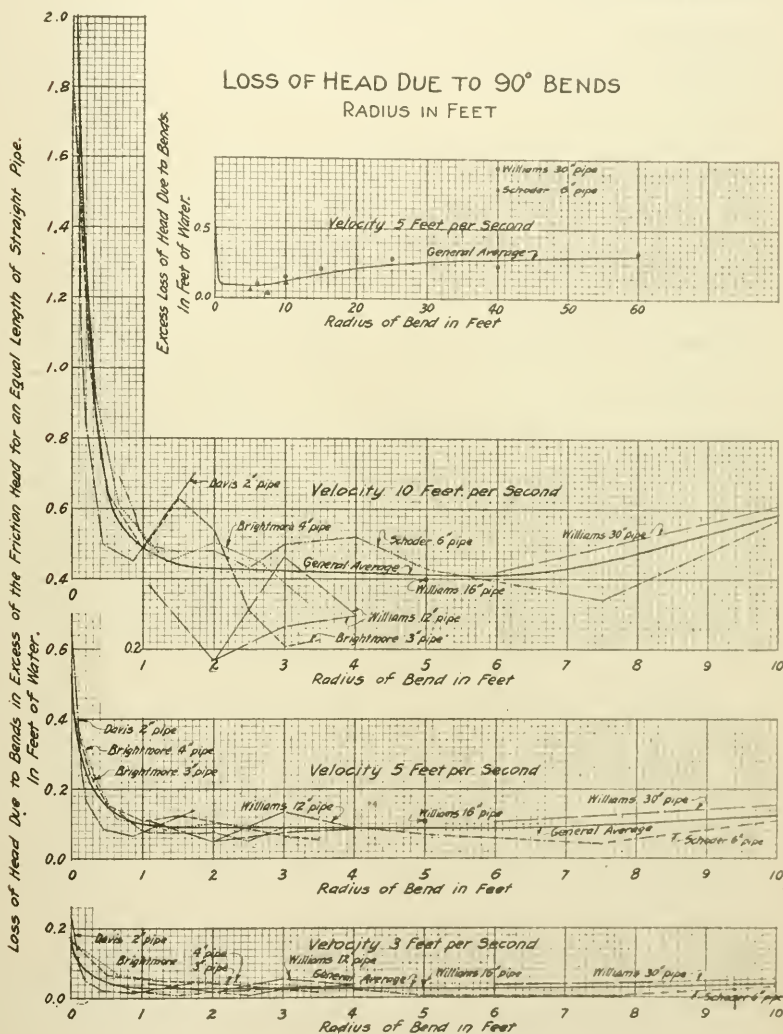 LOSS OF HEAD DUE TO 90° BENDS
RADIUS IN FEET
Loss of Head Due to Bends in Excess of the Friction Head for an Equal Length of Straight Pipe.
In Feet of Water.
2.0
1.8
1.6
1.4
1.2
1.0
0.8
0.6
0.4
0
0.2
Excess Loss of Head Due to Bends.
In Feet of Water.
0.5
0.0
Williams 30" pipe
Schoder 6" pipe
Velocity 5 Feet per Second
General Average
0 10 20 30 40 50 60
Radius of Bend in Feet
Velocity 10 Feet per Second
Davis 2" pipe
Brightmore 4" pipe
Schoder 6" pipe
Williams 30" pipe
General Average
Williams 16" pipe
Williams 12" pipe
Brightmore 3" pipe
1 2 3 4 5 6 7 8 9 10
Radius of Bend in Feet
0.6
0.4
0.2
0.0
Davis 2" pipe
Brightmore 4" pipe
Brightmore 3" pipe
Velocity 5 Feet per Second
Williams 12" pipe
Williams 16" pipe
Williams 30" pipe
General Average
Schoder 6" pipe
0 1 2 3 4 5 6 7 8 9 10
Radius of Bend in Feet
0.2
0.1
0.0
Davis 2" pipe
Brightmore
4" pipe
3" pipe
Velocity 3 Feet per Second
Williams 12" pipe
General Average
Williams 16" pipe
Williams 30" pipe
Schoder 6" pipe
0 1 2 3 4 5 6 7 8 9 10
Radius of Bend in Feet